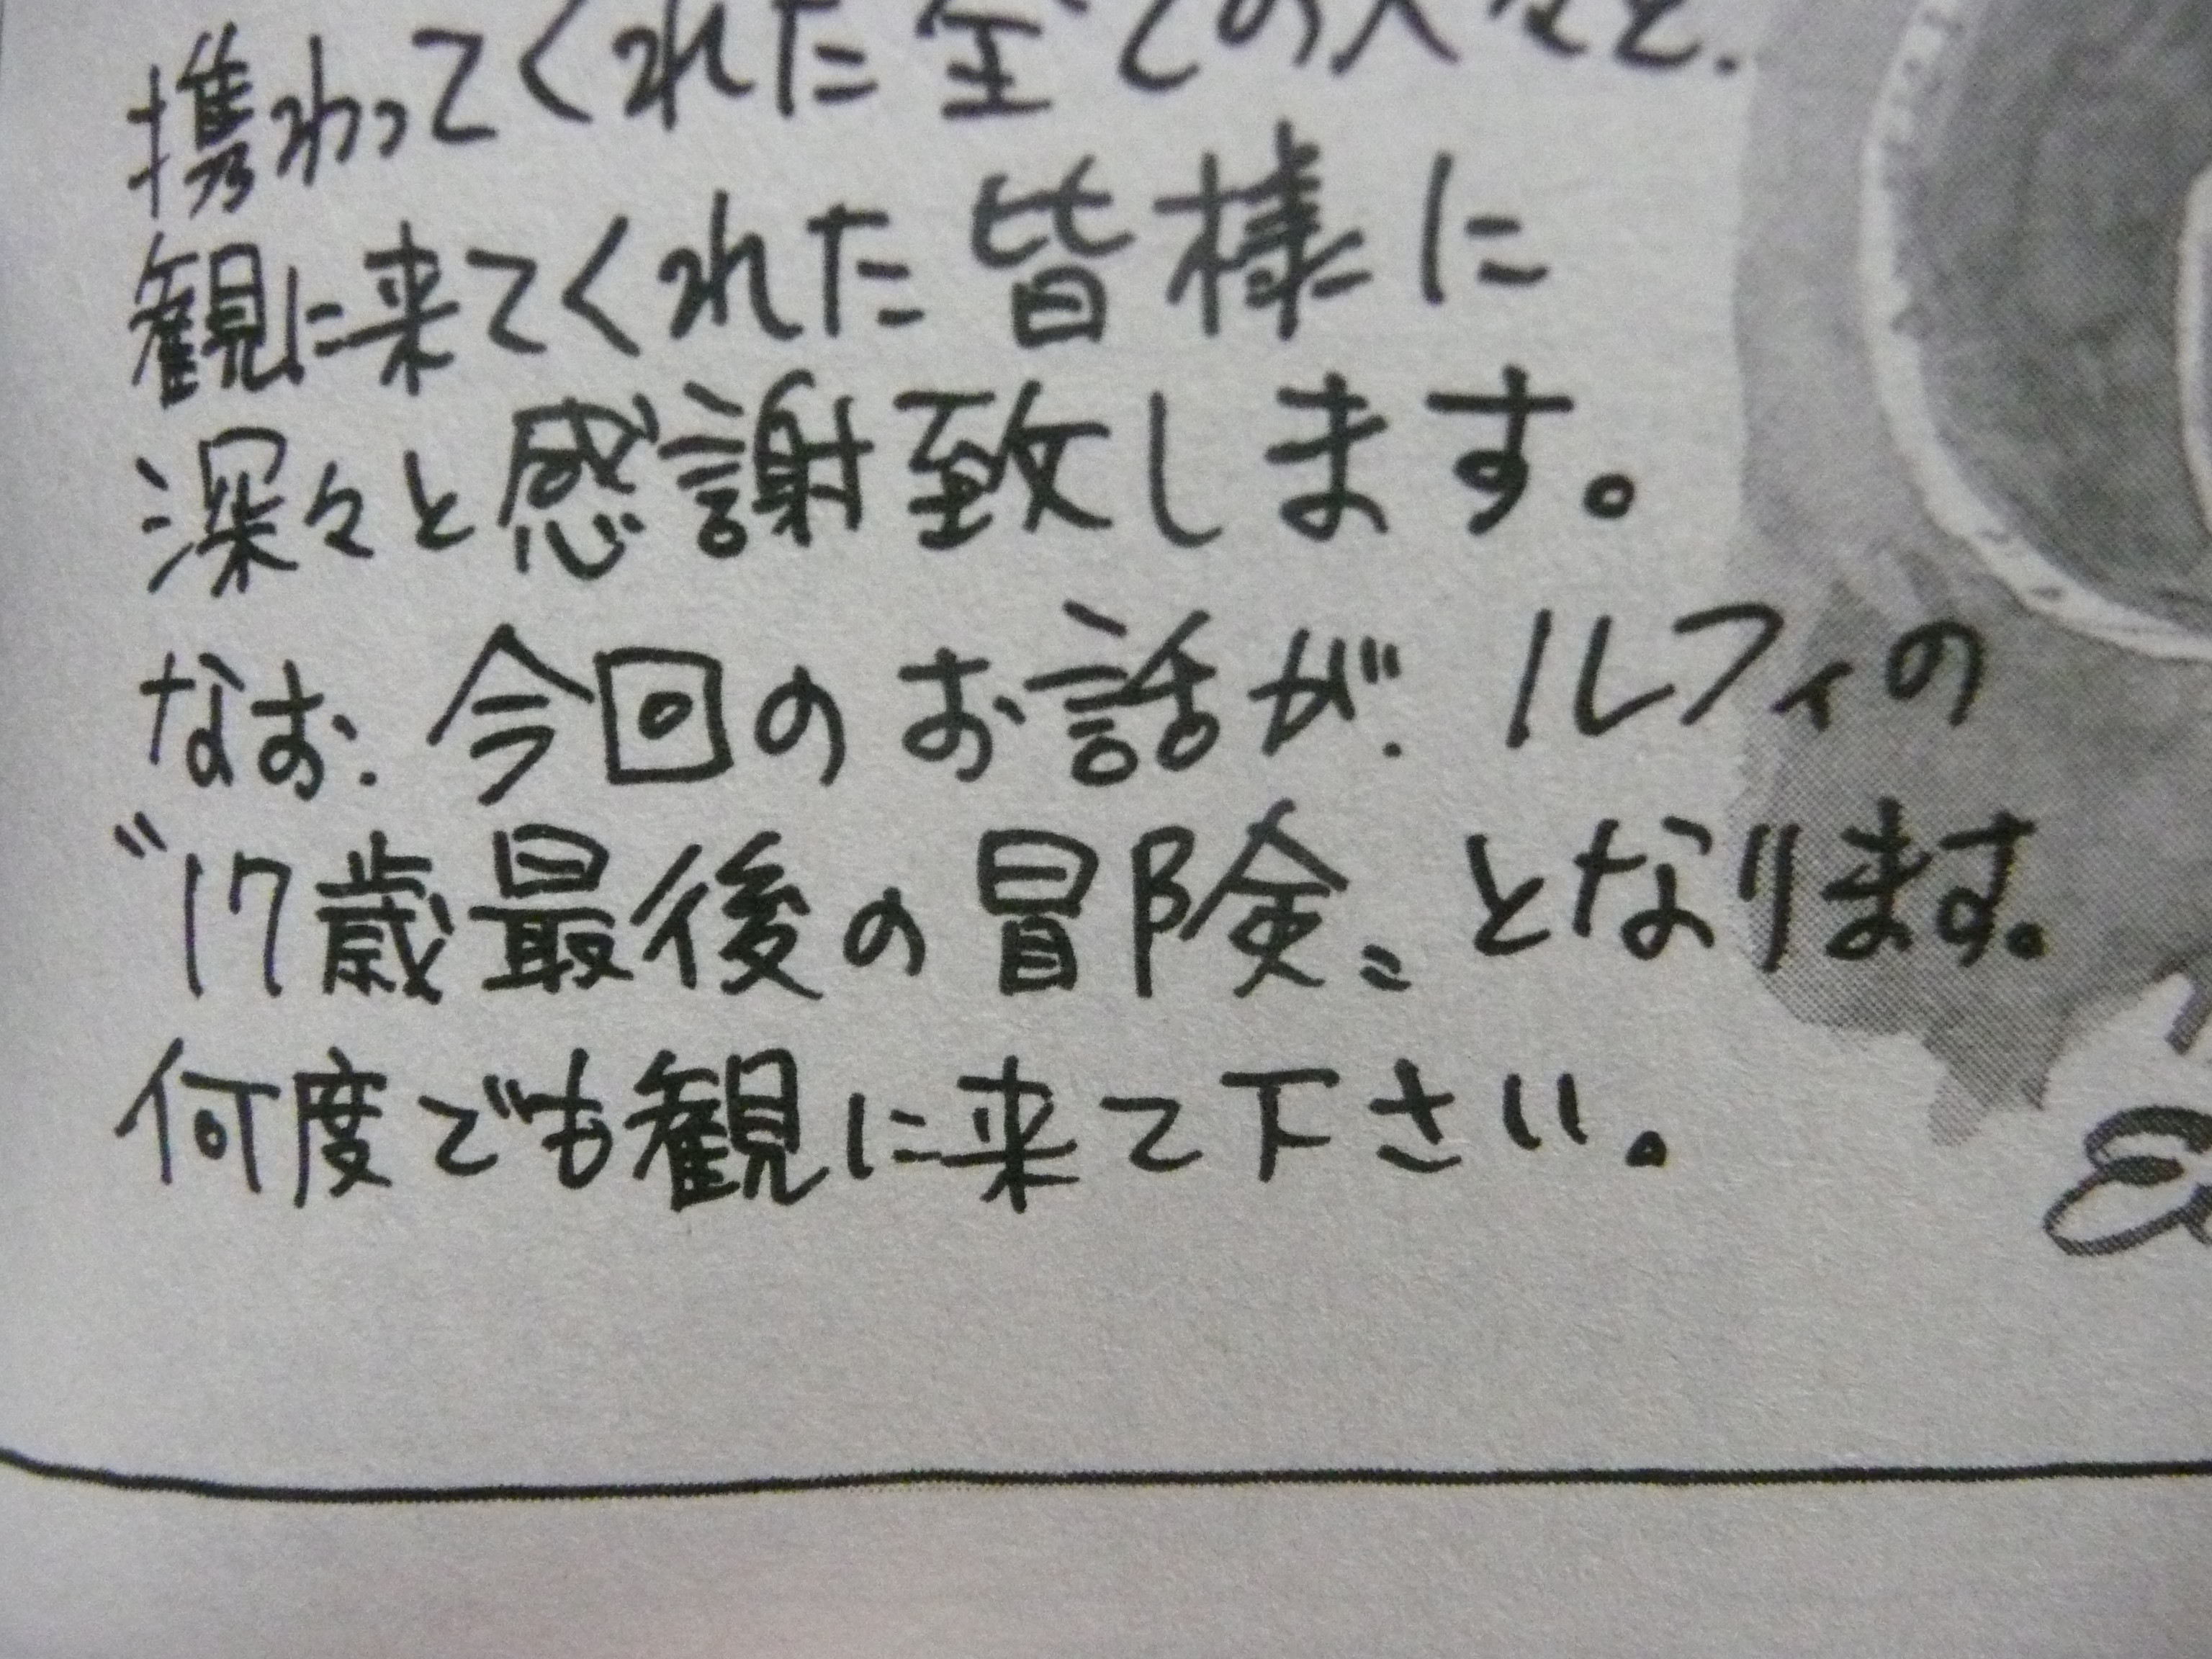 携わってくれた全ての人々と、
観に来てくれた皆様に
深々と感謝致します。
なお、今回のお話が、ルフィの
〝17歳最後の冒険〟となります。
何度でも観に来て下さい。